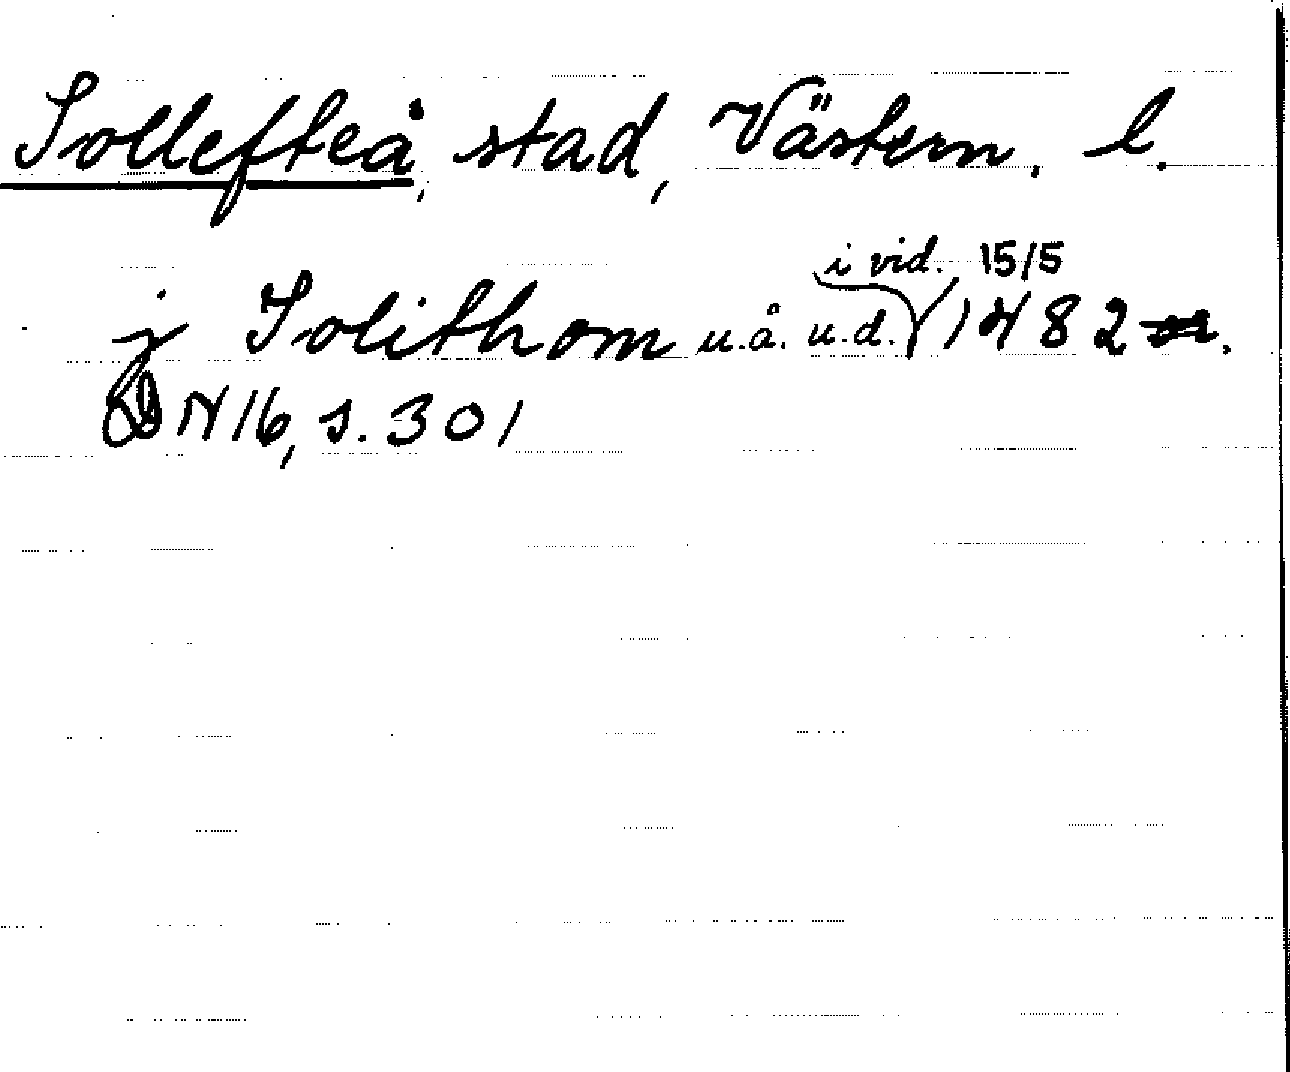 Sollefteå, stad, Västern. l.
j Solithom u.å. u.d. i vid. 15/5 1482.
DN 16, s. 301